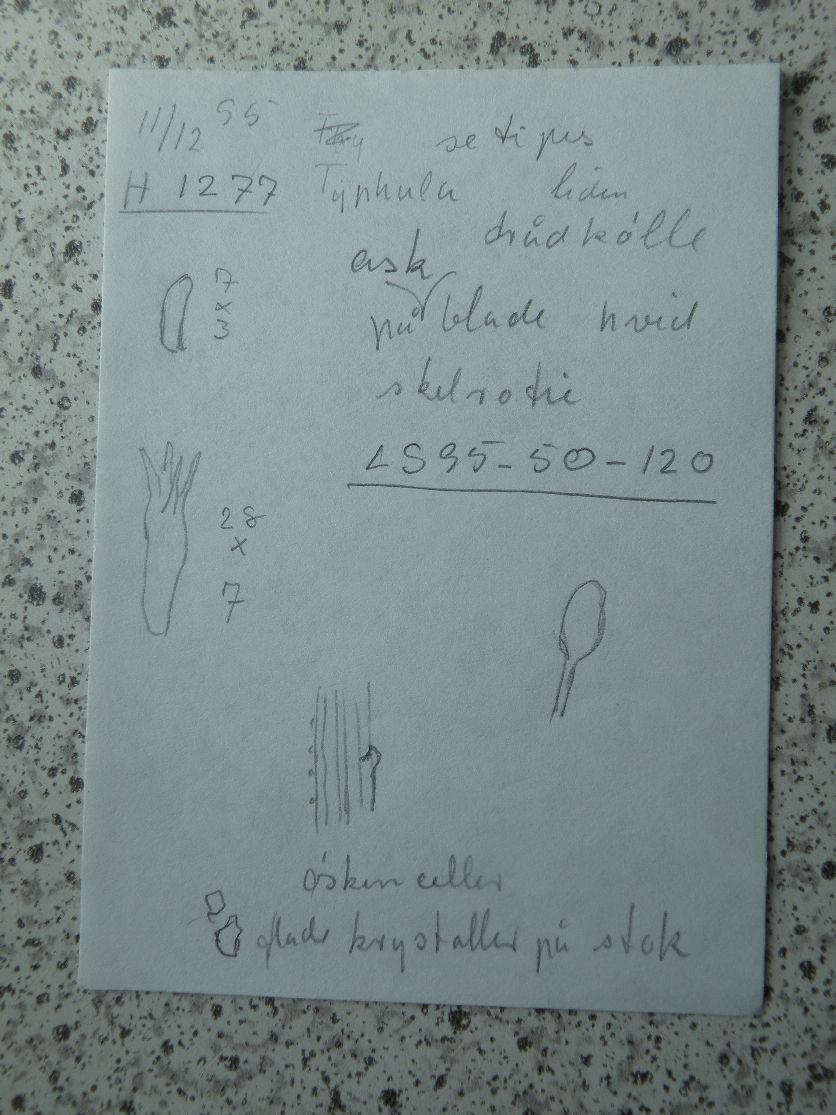 11/12 95
setipes
H 1277
Typhula liden
trådkølle
ask
på blade hvid
skelrotie
LS95-50-120
7
x
3
28
x
7
øsken celler
flade krystaller på stok